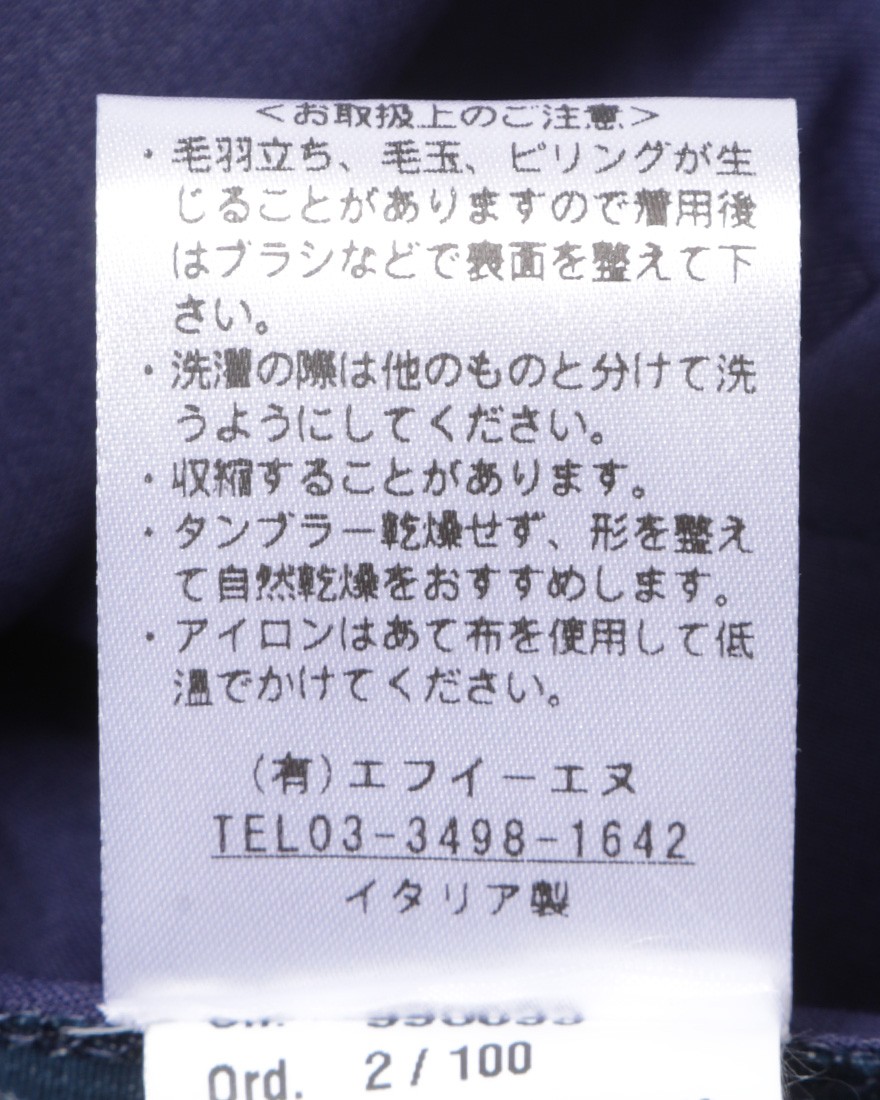 <お取扱上のご注意>
・毛羽立ち、毛玉、ピリングが生
じることがありますので着用後
はブラシなどで表面を整えて下
さい。
・洗濯の際は他のものと分けて洗
うようにしてください。
・収縮することがあります。
・タンブラー乾燥せず、形を整え
て自然乾燥をおすすめします。
・アイロンはあて布を使用して低
温でかけてください。
(有)エフイーエヌ
TEL03-3498-1642
イタリア製
Ord. 2 / 100